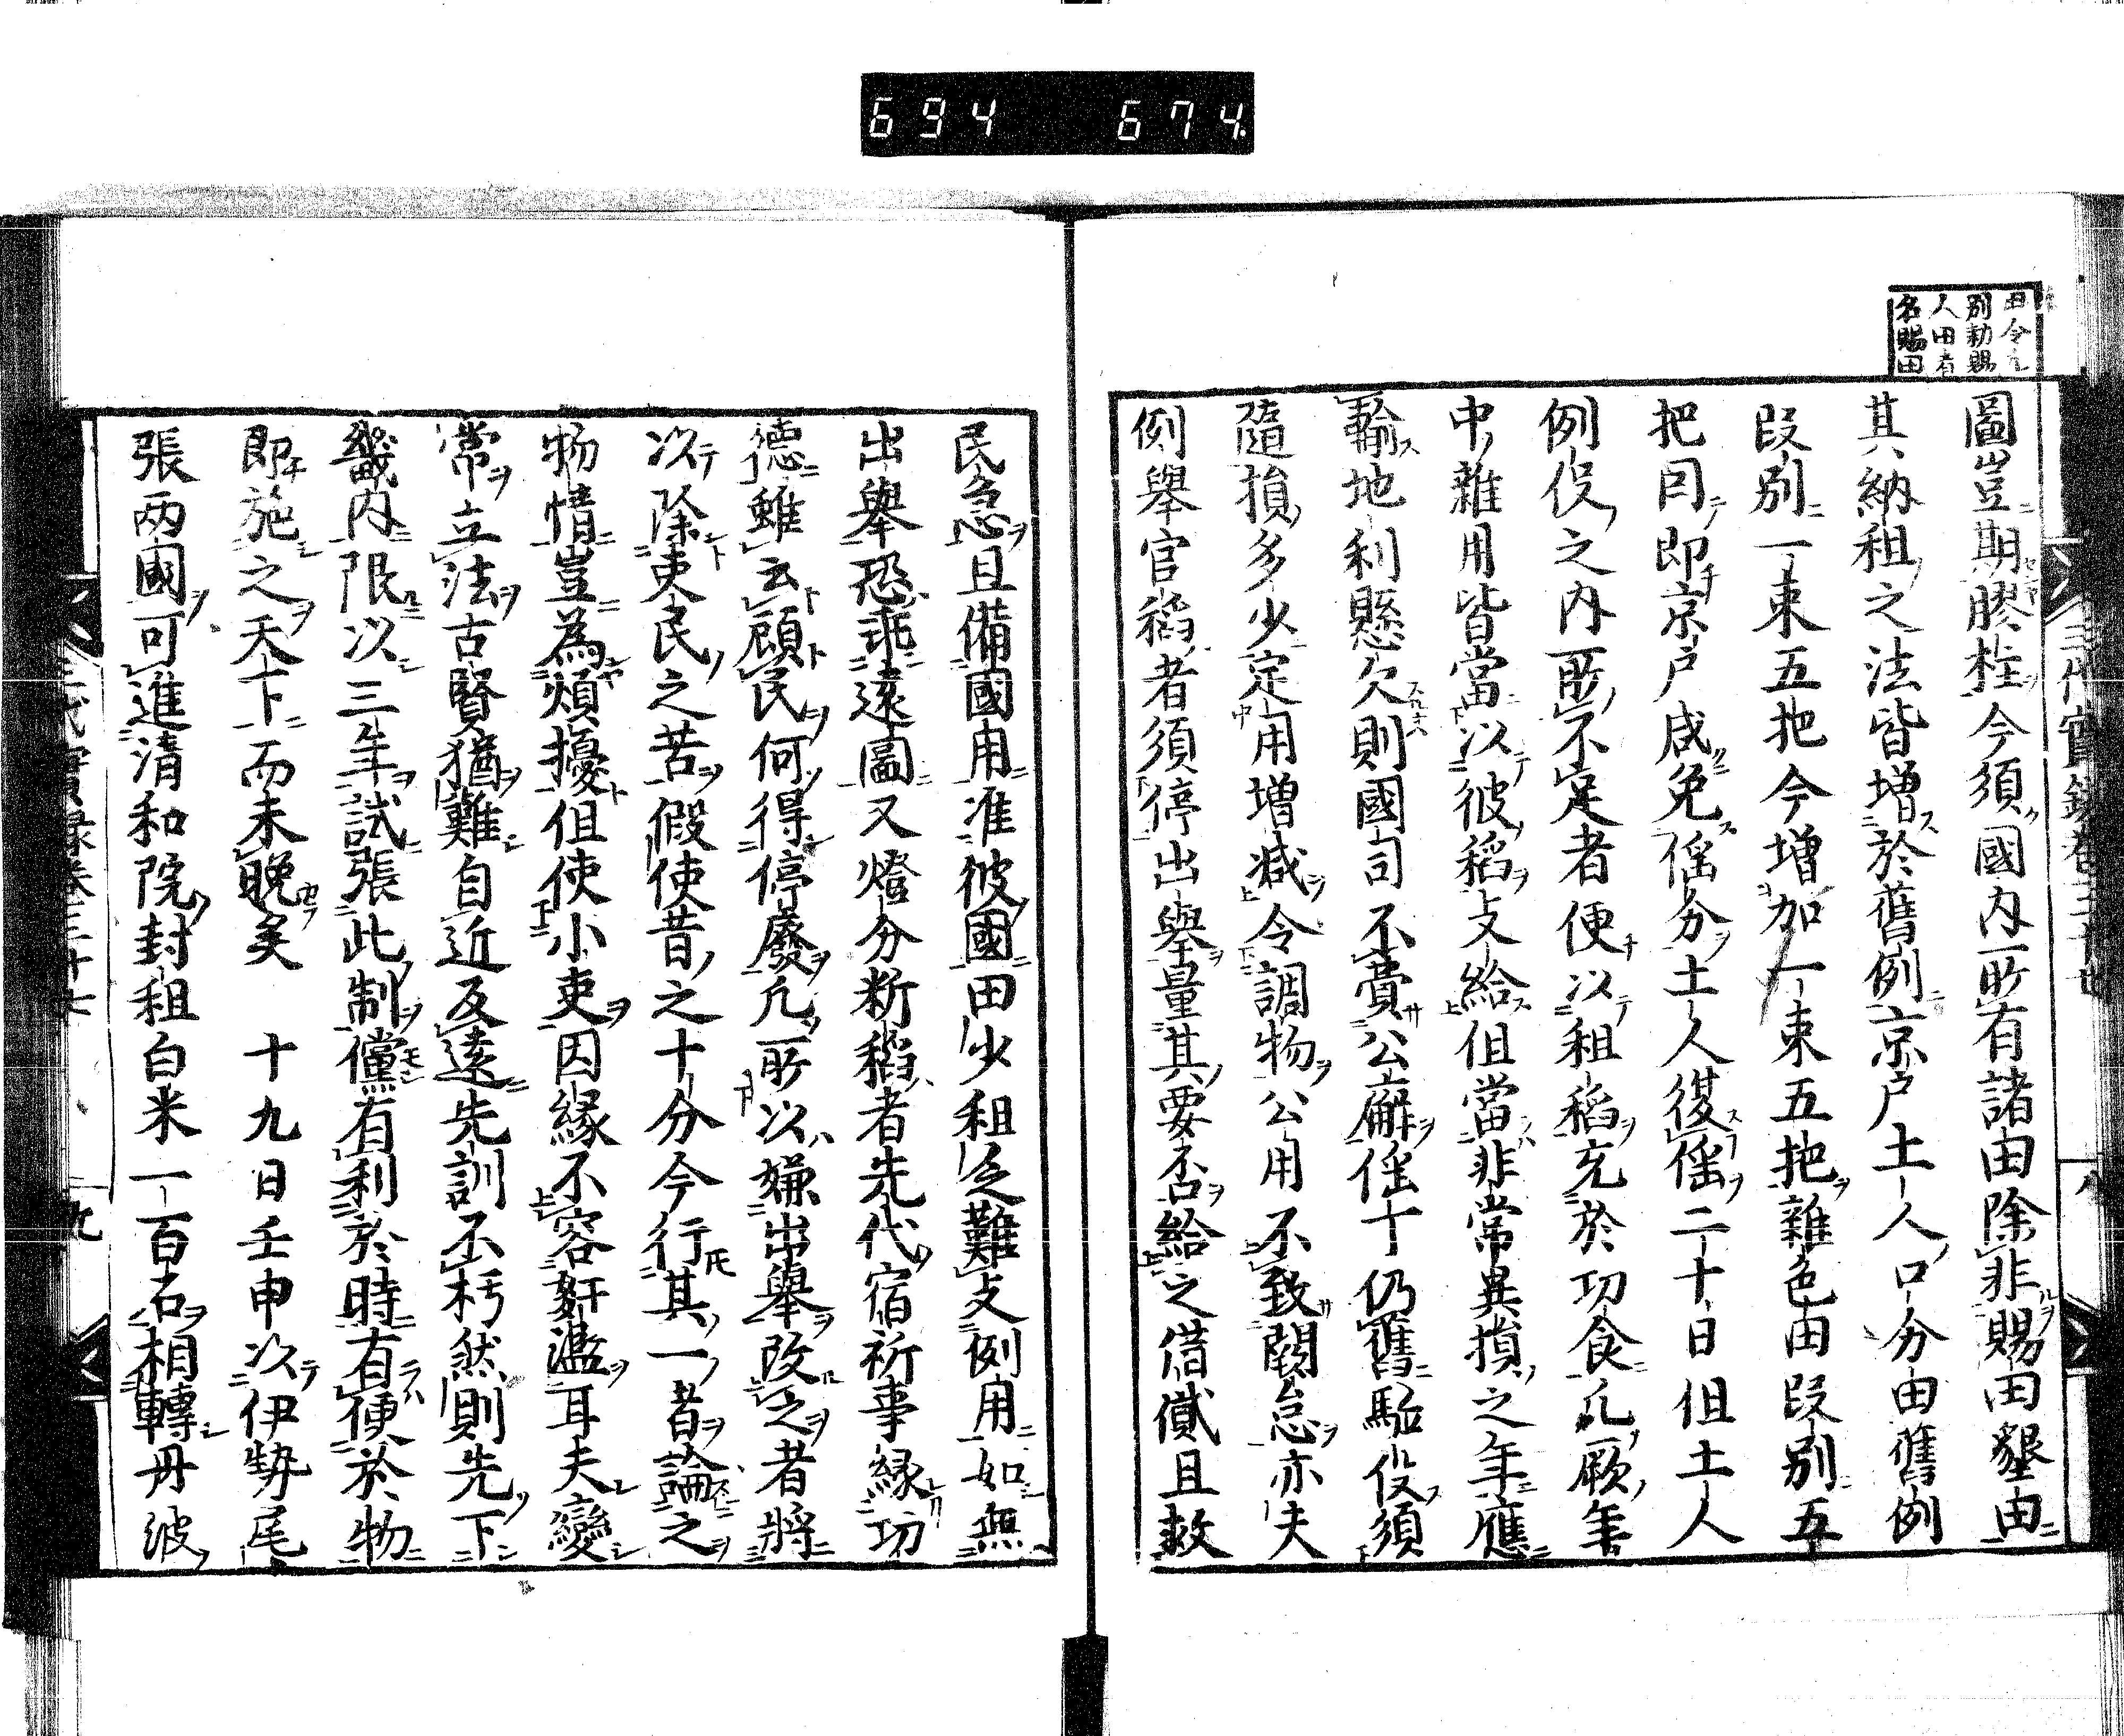 694 674
田令云
別勅賜
人田者
名賜田
圖豈期膠柱今須國内所有諸田除非賜田墾田
其納租之法皆増於舊例京戸土人口分田舊例
段別一束五把今増加一束五把雜色田段別五
把同即京戸咸免徭分土人復徭二十日但土人
例役之内所不足者便以租稻充於功食凡厥年
中雜用皆當以彼稻支給但當非常異損之年應
輸地利懸欠則國司不費公廨徭十仍舊駈役須
隨損多少定用増減令調物公用不致闕怠亦夫
例舉官稻者須停出舉量其要否給之借貸且救
民急且備國用准彼國田少租乏難支例用如無
出舉恐乖遠圖又燈分斷稻者先代宿祈事縁功
徳雖云顧民何得停廢凡所以嫌出舉改之者將
以除吏民之苦假使昔之十分今行其一者論之
物情豈為煩擾但使小吏因縁不容姧濫耳夫變
常立法古賢猶難自近及遠先訓不朽然則先下
畿内限以三年試張此制儻有利於時有便於物
即施之天下而未晩矣　十九日壬申以伊勢尾
張兩國可進清和院封租白米一百石相轉丹波
三代實録卷三十七
八
三代實録卷三十七
九